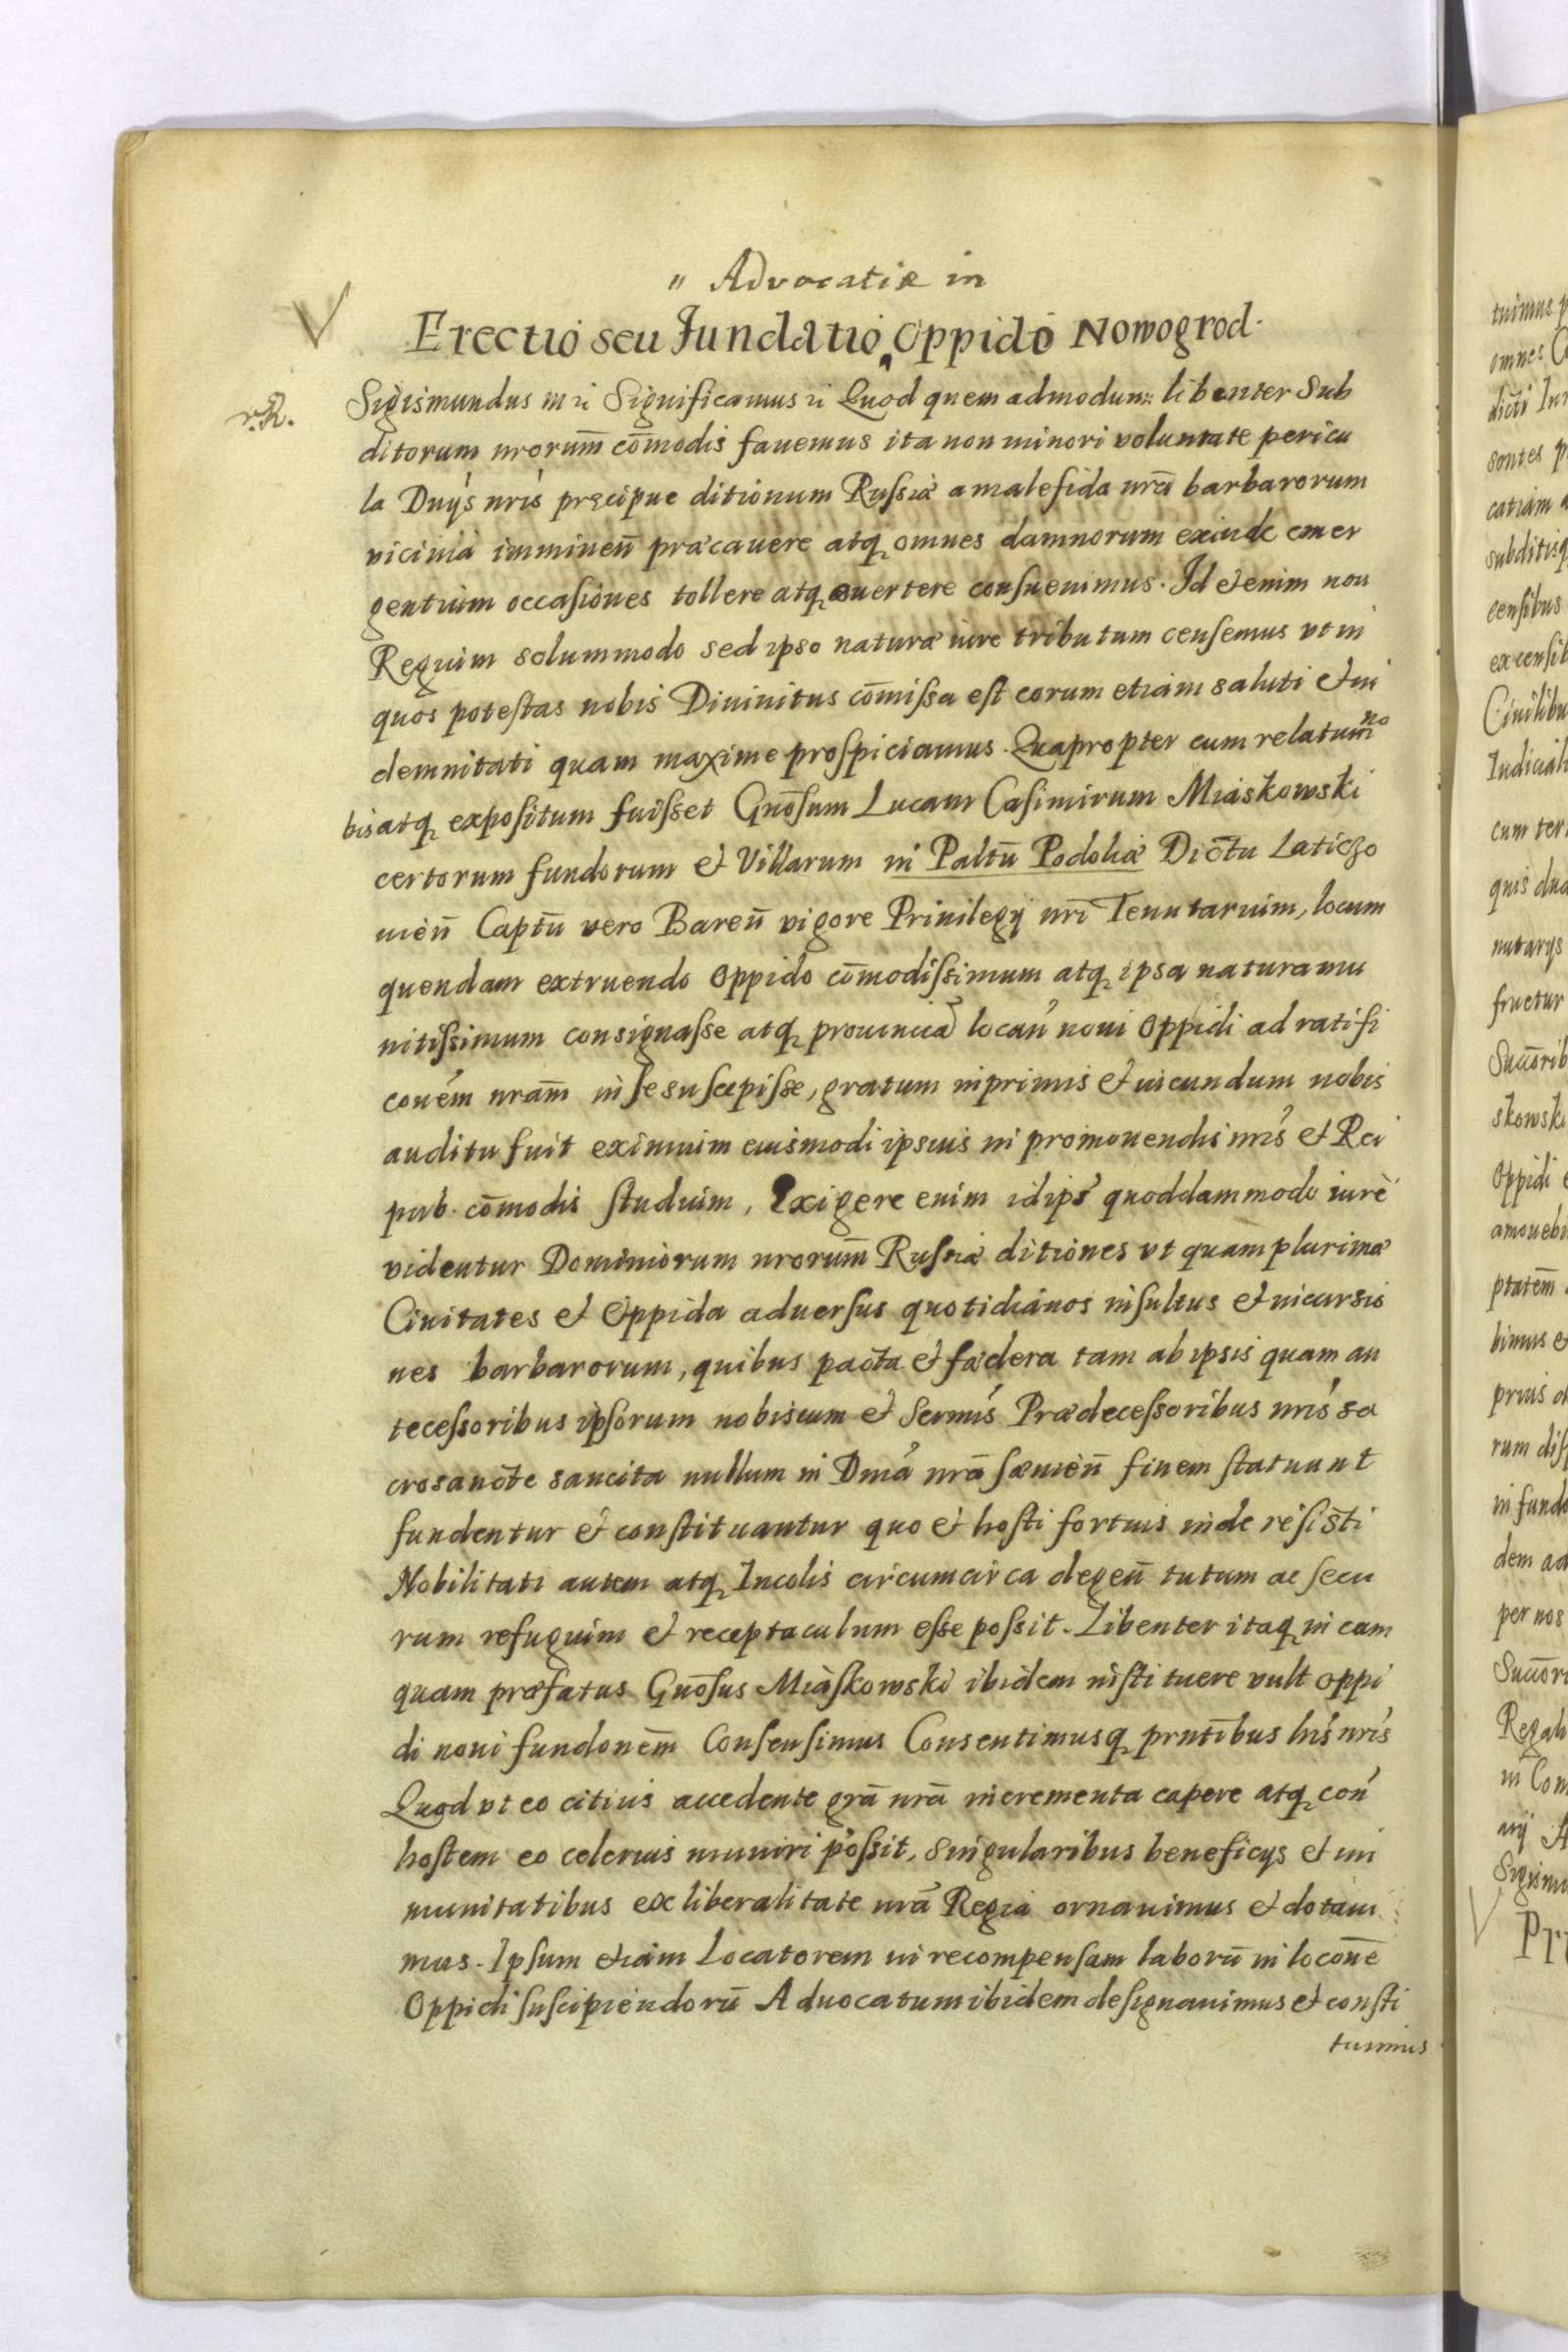 " Advocatiæ in
V
Erectio seu Fundatio Oppido Nowogrod.
v. R.
Sigismundus III Significamus Quod quemadmodum libenter Sub
ditorum nrorum̄ com̄odis fauemus ita non minori voluntate pericu
la Dnijs nris præcipue ditionum Russiæ a malefida nrā barbarorum
vicinia imminen̄ præcauere atq omnes damnorum exinde emer
gentium occasiones tollere atq auertere consueuimus. Id etenim non
Regium solummodo sed ipso naturæ iure tributum censemus vt in
quos potestas nobis Diuinitus com̄issa est eorum etiam saluti et in
demnitati quam maxime prospiciamus. Quapropter cum relatum no
bis atq expositum fuisset Gnōsum Lucam Casimirum Miaskowski
certorum fundorum et Villarum in Paltū Podoliæ Dictu Laticzo
uien̄ Captū vero Baren̄ vigore Priuilegij nrī Tenutarium, locum
quendam extruendo Oppido com̄odissimum atq ipsa natura mu
nitissimum consignasse atq prouincia locan noui Oppidi ad ratifi
conem nram̄ in se suscepisse, gratum inprimis et iucundum nobis
auditu fuit eximium eiusmodi ipsius in promouendis nris et Rei
pub. com̄odis studium, Exigere enim id ips quoddammodo iure
videntur Dominiorum nrorum̄ Russiæ ditiones vt quam plurimæ
Ciuitates et Oppida aduersus quotidianos insultus et incursio
nes barbarorum, quibus pacta et fædera tam ab ipsis quam an
tecessoribus ipsorum nobiscum et Sermis Prædecessoribus nris sa
crosancte sancita nullum in Dnia nrā sæuien̄ finem statuunt
fundentur et constituantur quo et hosti fortius inde resisti
Nobilitati autem atq Incolis circumcirca degen̄ tutum ac secu
rum refugium et receptaculum esse possit. Libenter itaq in eam
quam præfatus Gnōsus Miaskowski ibidem instituere vult Oppi
di noui fundonem̄ Consensimus Consentimusq prntībus his nris
Quod vt eo citius accedente grā nrā incrementa capere atq con
hostem eo celerius muniri possit, singularibus beneficijs et im
munitatibus ex liberalitate nrā Regia ornauimus et dotaui
mus. Ipsum etiam Locatorem in recompensam laborū in loconē
Oppidi suscipiendorū Aduocatum ibidem designauimus et consti
tuimus